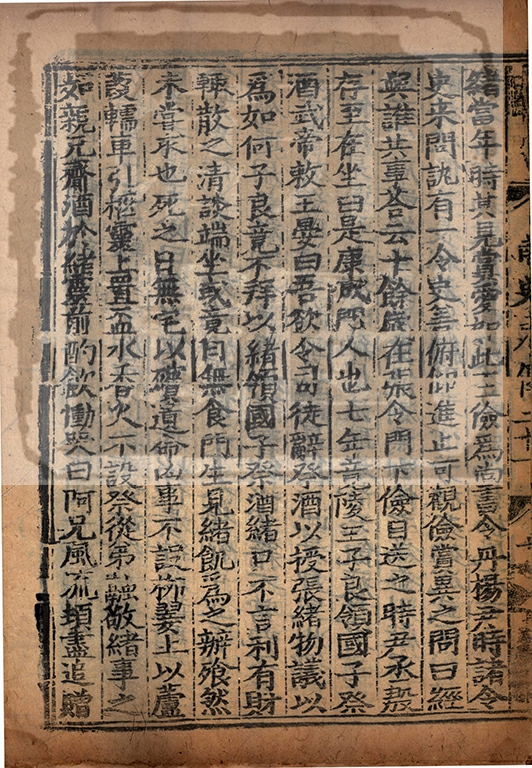 緒當年時其見賞愛如此王儉爲尚書令丹楊尹時諸令
史来問訊有一令史善俯仰進止可觀儉賞異之問曰經
與誰共事荅云十餘歳在張令門下儉目送之時尹丞殷
存至在坐曰是康成門人也七年竟陵王子良領國子祭
酒武帝敕王晏曰吾欲令司徒辭祭酒以授張緒物議以
爲如何子良竟不拜以緒領國子祭酒緒口不言利有財
輒散之清談端坐或竟日無食門生見緒飢爲之辦飡然
未嘗求也死之日無宅以殯遺命凶事不設柳翣上以蘆
葭轜車引柩靈上置盃水香火不設祭從弟融敬緒事之
如親兄齎酒於緒靈前酌飲慟哭曰阿兄風流頓盡追贈